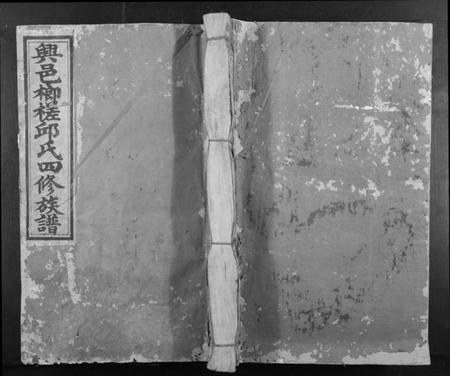 興邑槨槎邱氏四修族譜